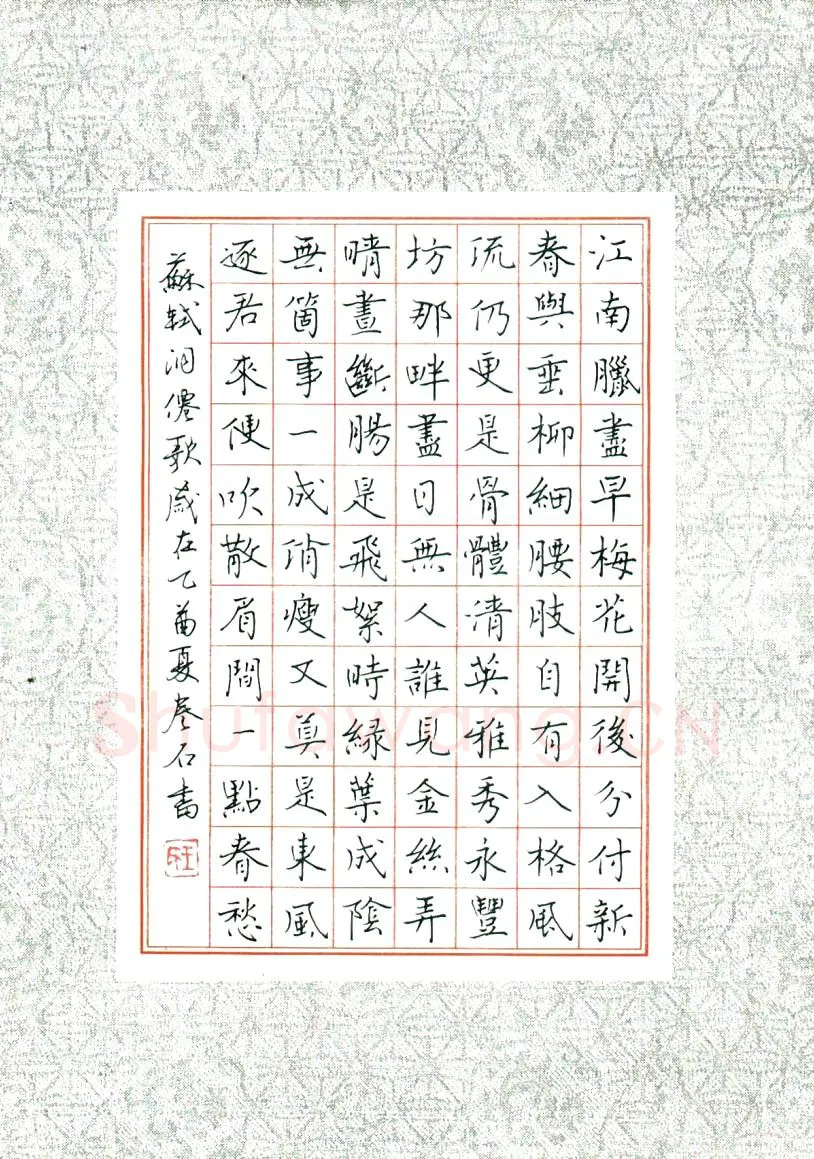 江南臘盡早梅花開後分付新
春與垂柳細腰肢自有入格風
流仍更是骨體清英雅秀永豐
坊那畔盡日無人誰見金絲弄
晴晝斷腸是飛絮時緑葉成陰
無箇事一成消瘦又莫是東風
逐君來便吹散眉間一點春愁
蘇軾洞僊歌歲在乙酉夏巻石書
Shufawang.CN